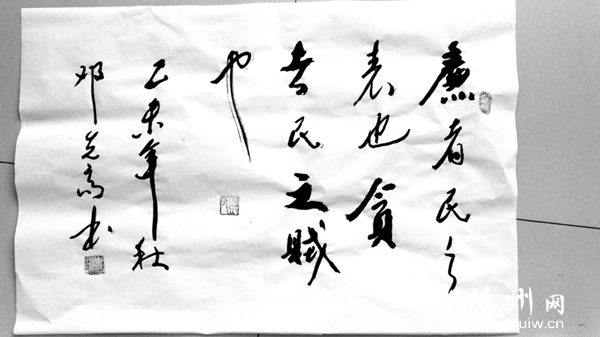 廉者民之
表也贪
者民之贼
也
乙未年秋
邓先高书
州网
uiw.cn